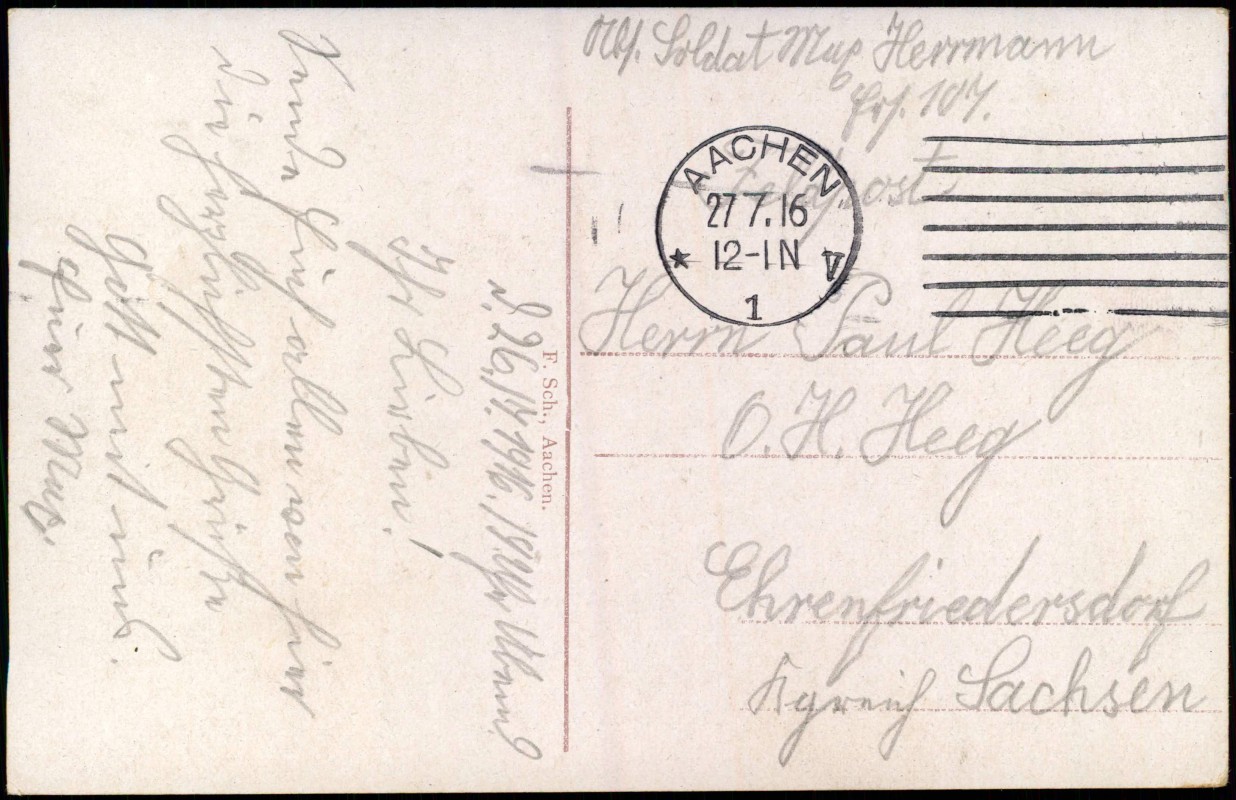 Abs. Soldat Max Herrmann
Ers. 107.
Feldpost
AACHEN
27.7.16
12-1 N
* V
1
Herrn Paul Heeg
O. H. Heeg
Ehrenfriedersdorf
Kgreich Sachsen
F. Sch., Aachen.
d. 26./7. 1916. Abend
Ihr Lieben!
Sende Euch allen von hier
die herzlichsten Grüße
Gott mit uns.
Euer Max.